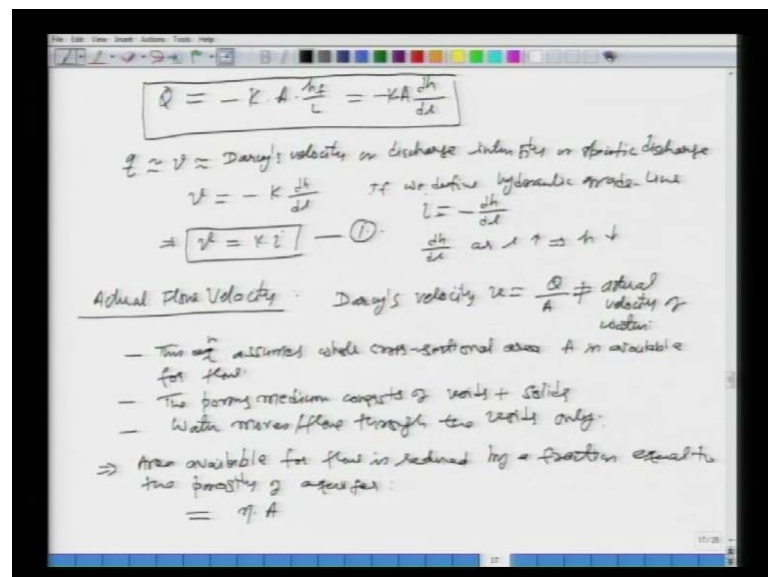 File Edit View Insert Actions Tools Help
Q = - K. A. hf/L = -KA dh/dl
q ≃ v ≈ Darcy's velocity or discharge intensity or specific discharge
v = - K dh/dl If we define hydraulic grade-line
i = - dh/dl
⇒ v = K i — ①. dh/dl as l ↑ ⇒ h ↓
Actual Flow Velocity : Darcy's velocity v = Q/A ≠ actual velocity of water.
— This eqn assumes whole cross-sectional area A is available
for flow.
— The porous medium consists of voids + solids
— Water moves/flows through the voids only.
⇒ Area available for flow is reduced by a fraction equal to
the porosity of aquifer :
= η. A
17/26
17